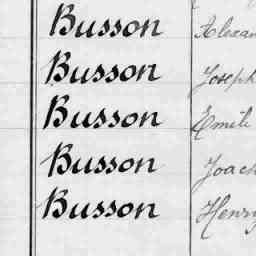 Busson Alexan
Busson Joseph
Busson Emile
Busson Joach
Busson Henry